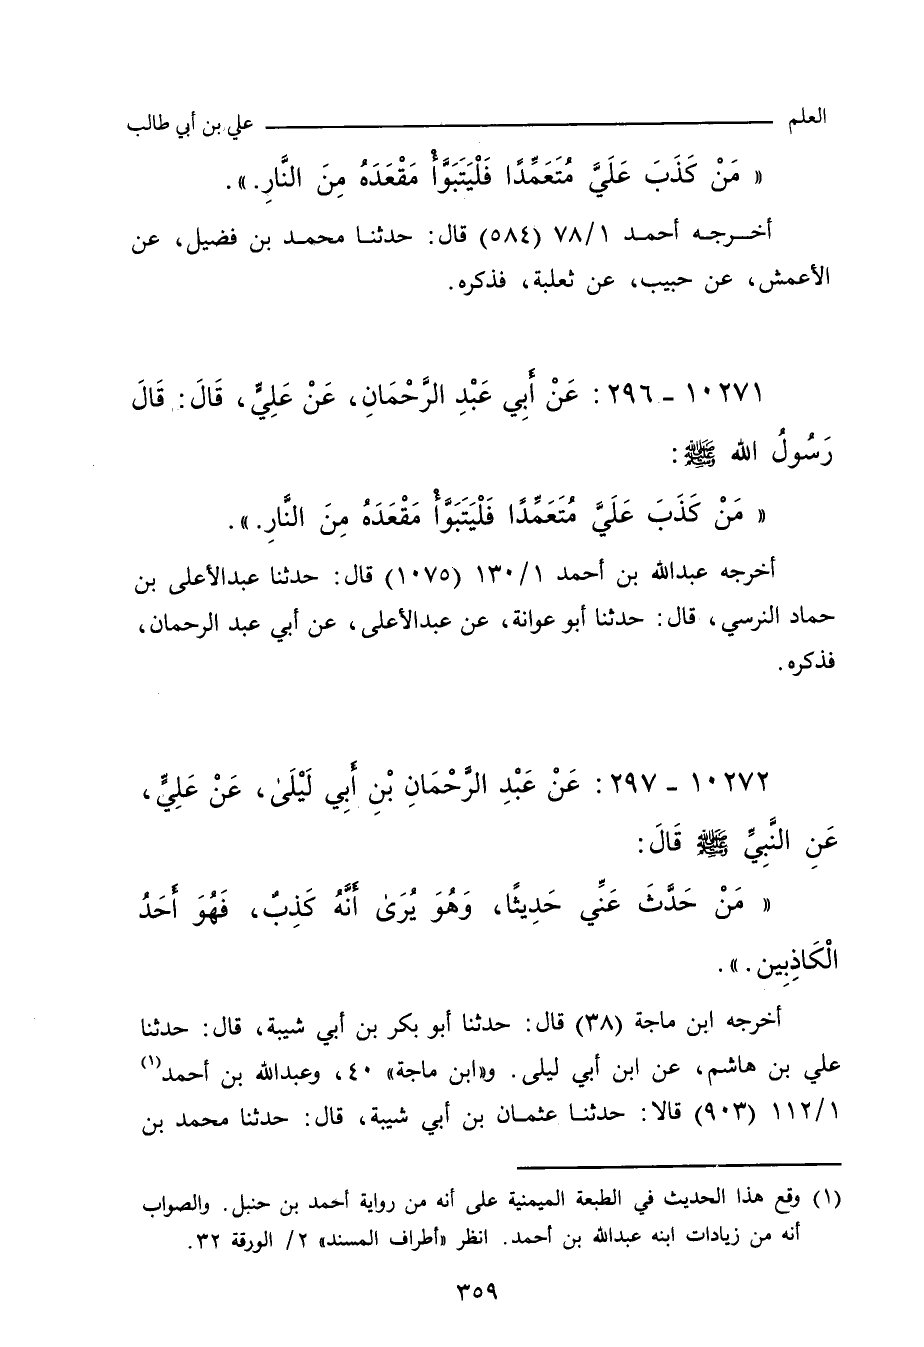 العلم ــــــــ علي بن أبي طالب
« مَنْ كَذَبَ عَلَيَّ مُتَعَمِّدًا فَلْيَتَبَوَّأْ مَقْعَدَهُ مِنَ النَّارِ. ».
أخرجه أحمد ٧٨/١ (٥٨٤) قال: حدثنا محمد بن فضيل، عن
الأعمش، عن حبيب، عن ثعلبة، فذكره.
١٠٢٧١ - ٢٩٦: عَنْ أَبِي عَبْدِ الرَّحْمَانِ، عَنْ عَلِيٍّ، قَالَ: قَالَ
رَسُولُ الله ﷺ:
« مَنْ كَذَبَ عَلَيَّ مُتَعَمِّدًا فَلْيَتَبَوَّأْ مَقْعَدَهُ مِنَ النَّارِ. ».
أخرجه عبدالله بن أحمد ١٣٠/١ (١٠٧٥) قال: حدثنا عبدالأعلى بن
حماد النرسي، قال: حدثنا أبو عوانة، عن عبدالأعلى، عن أبي عبد الرحمان،
فذكره.
١٠٢٧٢ - ٢٩٧: عَنْ عَبْدِ الرَّحْمَانِ بْنِ أَبِي لَيْلَىٰ، عَنْ عَلِيٍّ،
عَنِ النَّبِيِّ ﷺ قَالَ:
« مَنْ حَدَّثَ عَنِّي حَدِيثًا، وَهُوَ يُرَىٰ أَنَّهُ كَذِبٌ، فَهُوَ أَحَدُ
الْكَاذِبِين. ».
أخرجه ابن ماجة (٣٨) قال: حدثنا أبو بكر بن أبي شيبة، قال: حدثنا
علي بن هاشم، عن ابن أبي ليلى. و«ابن ماجة» ٤٠، وعبدالله بن أحمد(١)
١١٢/١ (٩٠٣) قالا: حدثنا عثمان بن أبي شيبة، قال: حدثنا محمد بن
(١) وقع هذا الحديث في الطبعة الميمنية على أنه من رواية أحمد بن حنبل. والصواب
أنه من زيادات ابنه عبدالله بن أحمد. انظر «أطراف المسند» ٢/ الورقة ٣٢.
٣٥٩